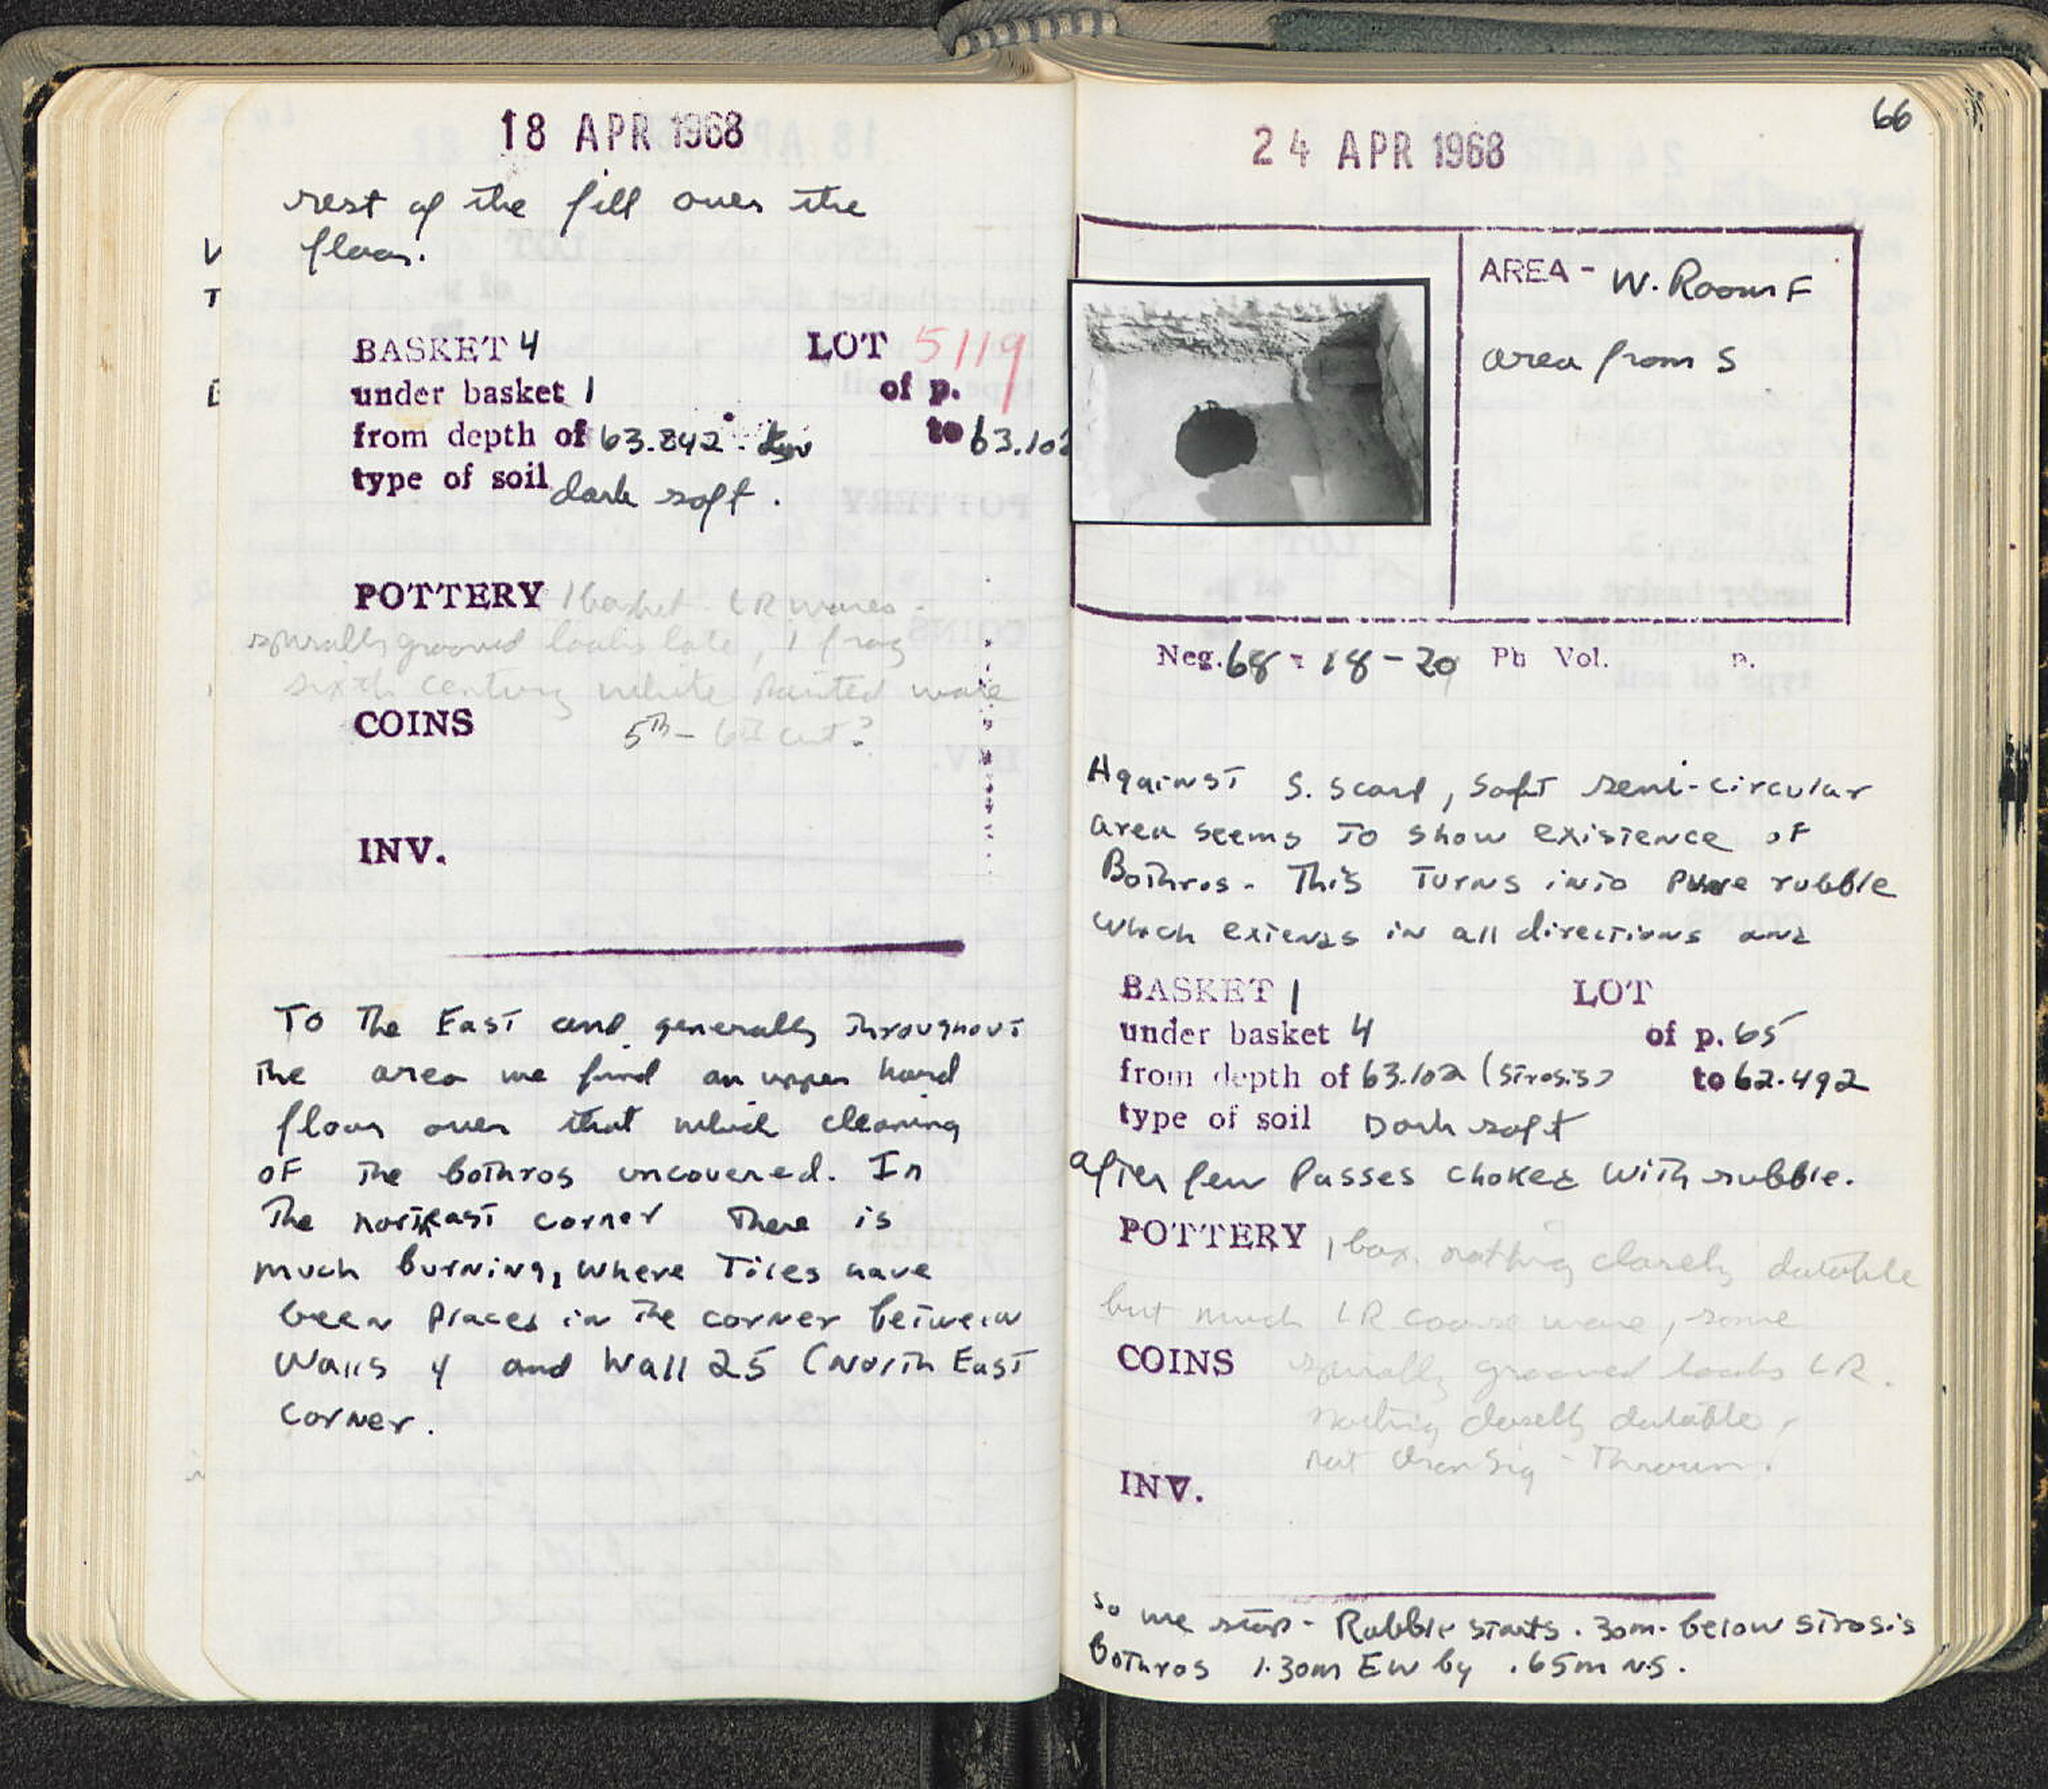 18 APR 1968
rest of the fill over the
floor.
BASKET 4 LOT 5119
under basket 1 of p.
from depth of 63.842 to 63.102
type of soil dark soft.
POTTERY 1 basket LR wares -
spirally grooved looks late, 1 frag
sixth century white painted ware
COINS 5th - 6th cent?
INV.
To The East and generally throughout
the area we find an upper hard
floor over that which cleaning
of the bothros uncovered. In
The northeast corner There is
much burning, where Tiles have
been placed in the corner between
Walls 4 and Wall 25 (North East
corner.
66
24 APR 1968
AREA - W. Room F
area from S
Neg. 68-18-20 Ph Vol. p.
Against S. Scarp, soft semi-circular
area seems To show existence of
Bothros. This Turns into pure rubble
which extends in all directions and
BASKET 1 LOT
under basket 4 of p. 65
from depth of 63.102 (strosis) to 62.492
type of soil Dark soft
after few passes choked with rubble.
POTTERY 1 box. nothing closely datable
but much LR coarse ware, some
COINS spirally grooved looks LR.
nothing closely datable,
INV.
so we stop - Rubble starts .30m. below strosis
Bothros 1.30m EW by .65m NS.